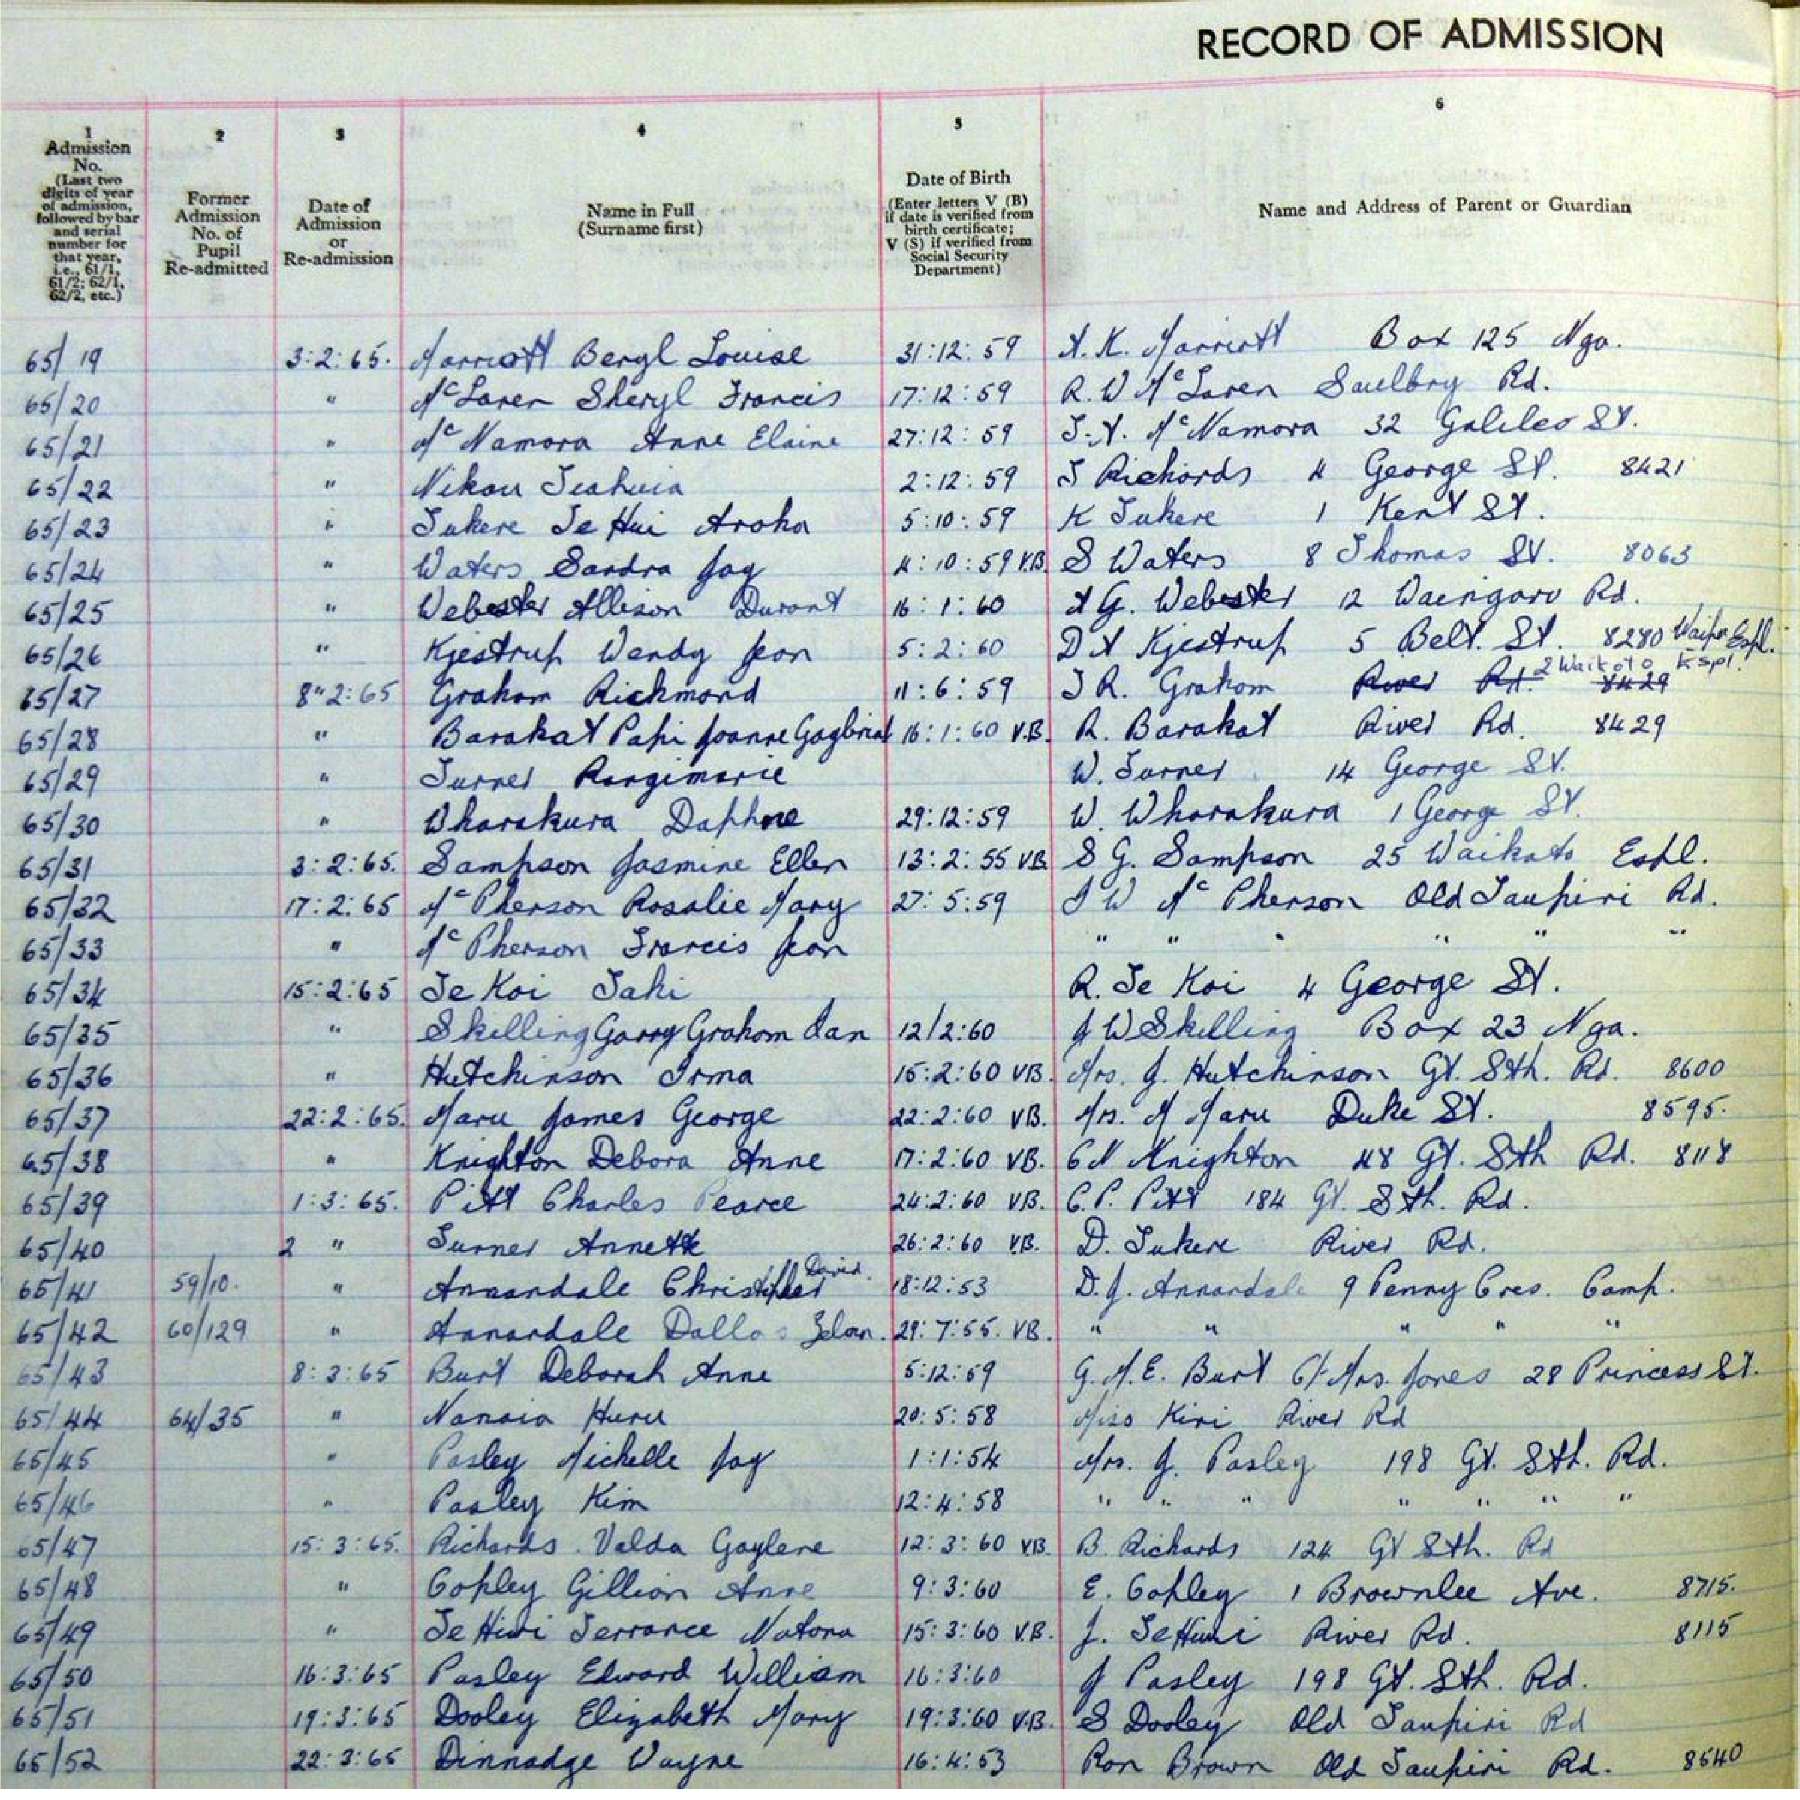 RECORD OF ADMISSION
1 2 3 4 5 6
Admission No. (Last two digits of year of admission, followed by bar and serial number for that year, i.e., 61/1, 61/2; 62/1, 62/2, etc.)
Former Admission No. of Pupil Re-admitted
Date of Admission or Re-admission
Name in Full (Surname first)
Date of Birth (Enter letters V (B) if date is verified from birth certificate; V (S) if verified from Social Security Department)
Name and Address of Parent or Guardian
65/19 3:2:65. Marriott Beryl Louise 31:12:59 A.K. Marriott Box 125 Nga.
65/20 " McLaren Sheryl Francis 17:12:59 R.W McLaren Saulbry Rd.
65/21 " McNamara Anne Elaine 27:12:59 T.A. McNamara 32 Galileo St.
65/22 " Nikau Teahuia 2:12:59 T Richards 4 George St. 8421
65/23 " Tukere Te Hui Aroha 5:10:59 K Tukere 1 Kent St.
65/24 " Waters Sandra Joy 4:10:59 V.B. S Waters 8 Thomas St. 8063
65/25 " Webster Allison Durant 16:1:60 A G. Webster 12 Waingaro Rd.
65/26 " Kjestrup Wendy Jean 5:2:60 D A Kjestrup 5 Belt. St. 8280 Waipa Espl.
65/27 8"2:65 Graham Richmond 11:6:59 T R. Graham River Rd. 2 Waikato Espl. 8429
65/28 " Barakat Papi Joanne Gaybrial 16:1:60 V.B. R. Barakat River Rd. 8429
65/29 " Turner Rangimarie W. Turner 14 George St.
65/30 " Wharakura Daphne 29:12:59 W. Wharakura 1 George St.
65/31 3:2:65. Sampson Jasmine Ellen 13:2:55 VB S G. Sampson 25 Waikato Espl.
65/32 17:2:65 McPherson Rosalie Mary 27:5:59 I W McPherson Old Taupiri Rd.
65/33 " McPherson Francis Jean " " " " " "
65/34 15:2:65 Te Koi Taki R. Te Koi 4 George St.
65/35 " Skelling Garry Graham Ian 12/2:60 J W Skelling Box 23 Nga.
65/36 " Hutchinson Irma 15:2:60 VB. Mrs. J. Hutchinson Gt. Sth. Rd. 8600
65/37 22:2:65. Maru James George 22:2:60 VB. Mrs. M Maru Duke St. 8595.
65/38 " Knighton Debora Anne 17:2:60 VB. C N Knighton 48 Gt. Sth Rd. 8118
65/39 1:3:65. Pitt Charles Pearce 24:2:60 VB. C.P. Pitt 184 Gt. Sth. Rd.
65/40 2 " Turner Annette 26:2:60 VB. D. Tukere River Rd.
65/41 59/10. " Annandale Christopher David. 18:12:53 D.J. Annandale 9 Penny Cres. Camp.
65/42 60/129 " Annandale Dallas 29:7:55. VB. " " " " "
65/43 8:3:65 Burt Deborah Anne 5:12:59 G.M.E. Burt C/- Mrs. Jones 28 Princess St.
65/44 64/35 " Nanaia Huru 20:5:58 Miss Kiri River Rd
65/45 " Pasley Michelle Joy 1:1:54 Mrs. J. Pasley 198 Gt. Sth. Rd.
65/46 " Pasley Kim 12:4:58 " " " " " " "
65/47 15:3:65. Richards. Valda Gaylene 12:3:60 VB. B. Richards 124 Gt Sth. Rd
65/48 " Copley Gillian Anne 9:3:60 E. Copley 1 Brownlee Ave. 8715.
65/49 " Te Hiwi Terrance Natana 15:3:60 V.B. J. TeHiwi River Rd. 8115
65/50 16:3:65 Pasley Edward William 16:3:60 J Pasley 198 Gt. Sth. Rd.
65/51 19:3:65 Dooley Elizabeth Mary 19:3:60 V.B. S Dooley Old Taupiri Rd
65/52 22:3:65 Dinnadge Wayne 16:4:53 Ron Brown Old Taupiri Rd. 8640